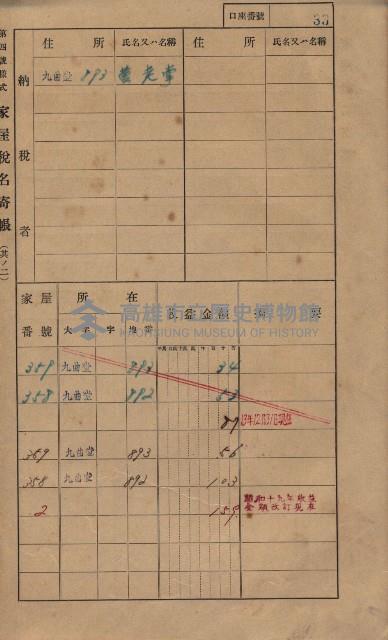 口座番號 33
第四號樣式 家屋稅名寄帳(其ノ二)
納稅者
住所 氏名又ハ名稱 住所 氏名又ハ名稱
九曲堂 893
家屋番號 所在 收益金額 摘要
大字 字 地番
359 九曲堂 893 34
358 九曲堂 892 53
87 13年12月31日現在
359 九曲堂 893 56
358 九曲堂 892 103
2 159 昭和十九年收益金額改訂現在
高雄市立歷史博物館
KAOHSIUNG MUSEUM OF HISTORY